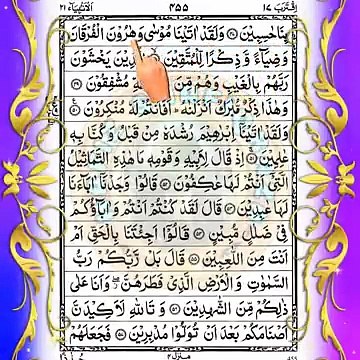 اقترب ١٧ ٤٥٥ الانبيآء ٢١
بِنَا حٰسِبِیْنَ وَ لَقَدْ اٰتَیْنَا مُوْسٰی وَ هٰرُوْنَ الْفُرْقَانَ
وَ ضِیَآءً وَّ ذِكْرًا لِّلْمُتَّقِیْنَ یْنَ یَخْشَوْنَ
رَبَّهُمْ بِالْغَیْبِ وَ هُمْ مِّنَ مُشْفِقُوْنَ
وَ هٰذَا ذِكْرٌ مُّبٰرَكٌ اَنْزَلْنٰهُ اَفَاَنْتُمْ لَهٗ مُنْكِرُوْنَ
وَ لَقَدْ اٰتَیْنَاۤ اِبْرٰهِیْمَ رُشْدَهٗ مِنْ قَبْلُ وَ كُنَّا بِهٖ
عٰلِمِیْنَ اِذْ قَالَ لِاَبِیْهِ وَ قَوْمِهٖ مَا هٰذِهِ التَّمَاثِیْلُ
الَّتِیْۤ اَنْتُمْ لَهَا عٰكِفُوْنَ قَالُوْا وَجَدْنَاۤ اٰبَآءَنَا
لَهَا عٰبِدِیْنَ قَالَ لَقَدْ كُنْتُمْ اَنْتُمْ وَ اٰبَآؤُكُمْ
فِیْ ضَلٰلٍ مُّبِیْنٍ قَالُوْۤا اَجِئْتَنَا بِالْحَقِّ اَمْ
اَنْتَ مِنَ اللّٰعِبِیْنَ قَالَ بَلْ رَّبُّكُمْ رَبُّ
السَّمٰوٰتِ وَ الْاَرْضِ الَّذِیْ فَطَرَهُنَّ وَ اَنَا عَلٰی
ذٰلِكُمْ مِّنَ الشّٰهِدِیْنَ وَ تَاللّٰهِ لَاَكِیْدَنَّ
اَصْنَامَكُمْ بَعْدَ اَنْ تُوَلُّوْا مُدْبِرِیْنَ فَجَعَلَهُمْ
منزل ٤